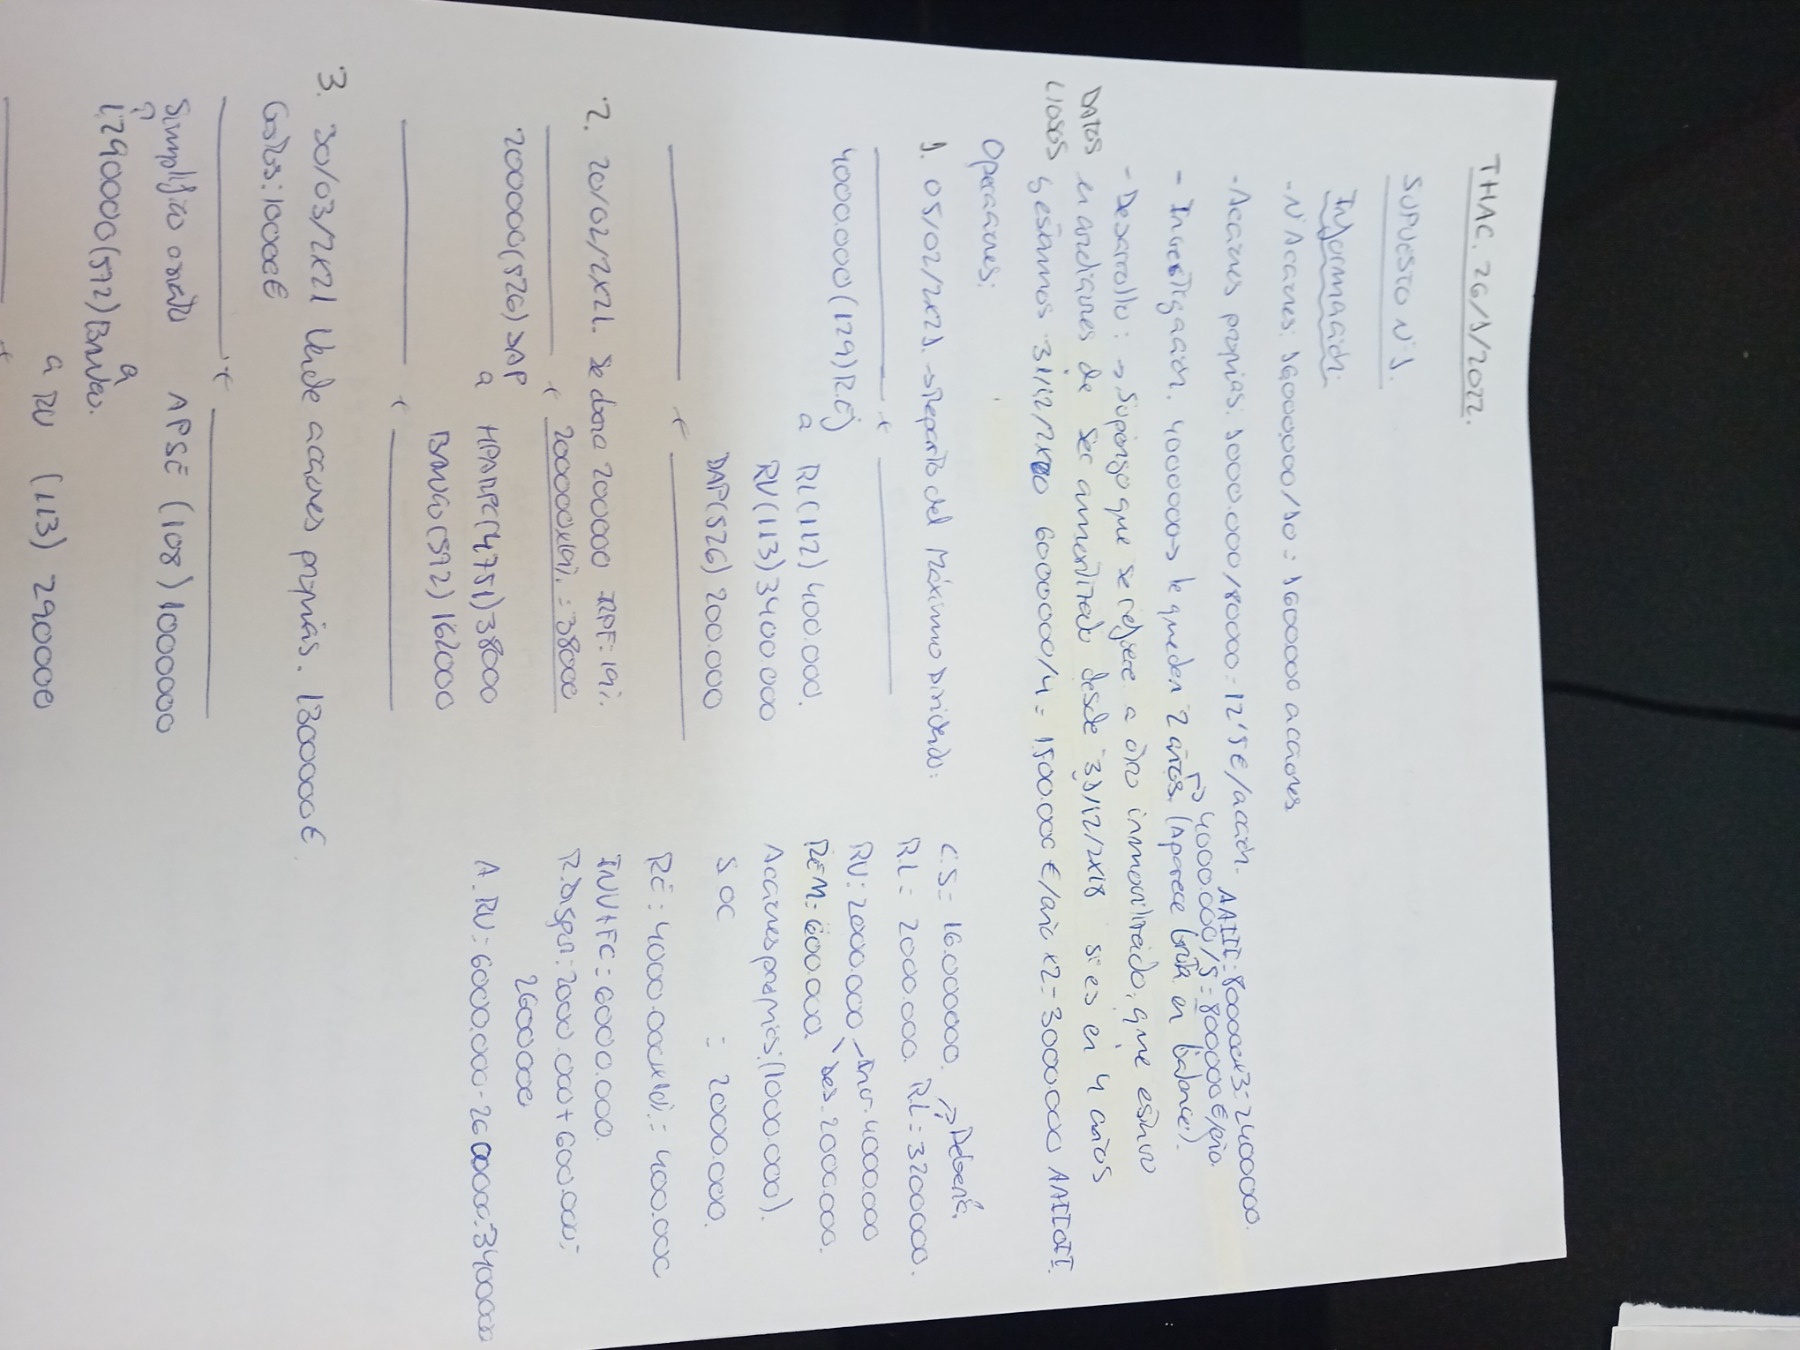 THAC. 26/1/2022.
SUPUESTO Nº1.
Información.
- Nº Acciones: 16000.000/10 = 1600000 acciones
- Acciones propias: 1000.000/80000 = 12'5€/acción. AAII: 800000x3=2400000.
4000.000/5=800000€/año
- Investigación. 4000000→ le quedan 2 años. (Aparece bruta en balance).
- Desarrollo: → Supongo que se refiere a otro inmovilizado, que estuvo
DATOS en condiciones de ser amortizado desde 31/12/2x18 si es en 4 años
LIOSOS y estamos 31/12/2x20 6000000/4 = 1500.000€/año x2 = 3000.000 AAII
Operaciones:
1. 05/02/2x21. → Reparto del Máximo Dividendo:
4000.000 (129) REj
a RL (112) 400.000.
RV (113) 3400.000
DAP (526) 200.000
C.S = 16.000000. → Debería
R.L = 2000.000. RL = 3200000.
RV: 2000.000 Inv. 4000.000
REM = 600.000 Des. 2000.000.
Acciones propias: (1000.000).
S OC = 2000.000.
RE: 4000.000x10% = 400.000
INV+FC = 6000.000.
R. Dispon: 2000.000 + 600.000;
2600000
A. RV = 6000.000 - 2600000 = 3400000
2. 20/02/2x21. Se dona 200000 IRPF = 19%.
200000x19% = 38000
200000 (526) DAP
a HPAIPC (4751) 38000
BANCO (572) 162000
3. 30/03/2x21 Vende acciones propias. 1300000€.
Gastos: 10000€
Simplifico asiento
1,290000 (572) Banco.
a APSE (108) 1000000
a RV (113) 290000